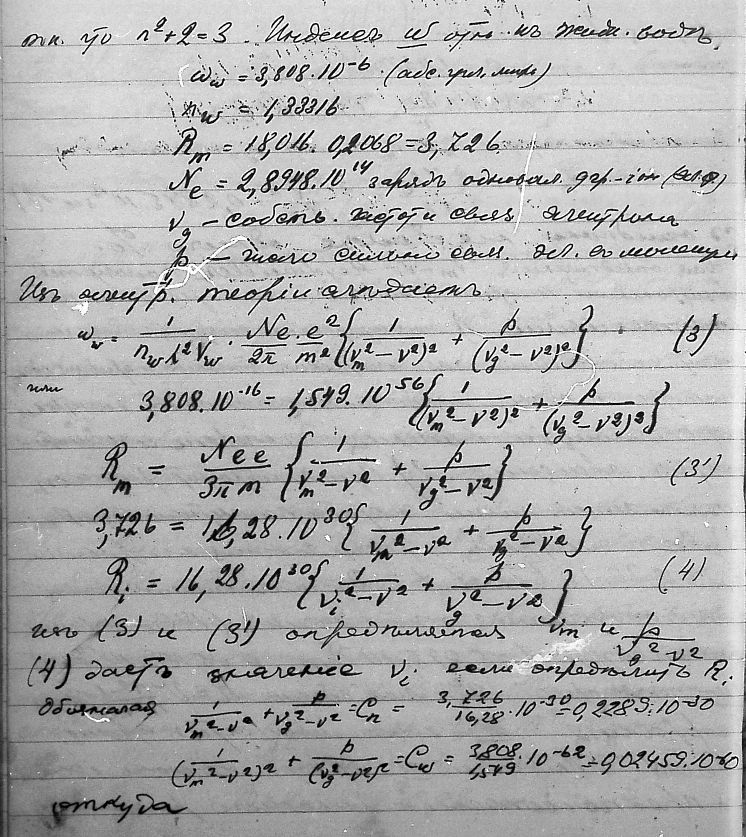 что n²+2=3. Индексъ w отн. къ жидк. водѣ
ω_w = 3,808·10⁻⁶ (абс. мин)
n_w = 1,33316
R_m = 18,016 · 0,2068 = 3,726
Ne = 2,8948·10¹⁴ зарядъ одновал. гр-iон
ν_g – собств. частоти связ электрона
p – число связ. эл. въ молекули
Изъ электр. теорiи слѣдуетъ
ω_w = 1/(n_w λ² V_w) · Ne/2π · e²/m² {1/(ν_m²−ν²)² + p/(ν_g²−ν²)²} (3)
или 3,808·10⁻¹⁶ = 1,549·10⁵⁶ {1/(ν_m²−ν²)² + p/(ν_g²−ν²)²}
R_m = Nee/3πm {1/(ν_m²−ν²) + p/(ν_g²−ν²)} (3')
3,726 = 16,28·10³⁰ {1/(ν_m²−ν²) + p/(ν_g²−ν²)}
R_i = 16,28·10³⁰ {1/(ν_i²−ν²) + p/(ν_g²−ν²)} (4)
изъ (3) и (3') опредѣляется ν_m и p/(ν_g²−ν²)
(4) дастъ значенiе ν_i если опредѣлить R_i
Обозначая 1/(ν_m²−ν²) + p/(ν_g²−ν²) = C_n = 3,726/16,28 · 10⁻³⁰ = 0,2289·10⁻³⁰
1/(ν_m²−ν²)² + p/(ν_g²−ν²)² = C_w = 3,808/1,549 · 10⁻⁶² = 0,02459·10⁻⁶⁰
откуда